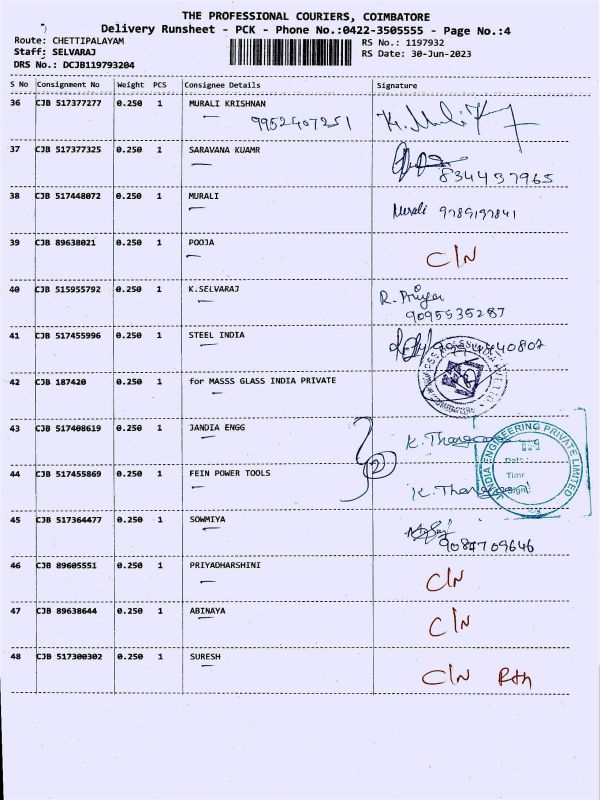 THE PROFESSIONAL COURIERS, COIMBATORE
Delivery Runsheet - PCK - Phone No.:0422-3505555 - Page No.:4
Route: CHETTIPALAYAM
RS No.: 1197932
Staff: SELVARAJ
RS Date: 30-Jun-2023
DRS No.: DCJB119793204
S No Consignment No Weight PCS Consignee Details Signature
36 CJB 517377277 0.250 1 MURALI KRISHNAN
9952407251
37 CJB 517377325 0.250 1 SARAVANA KUAMR
834437965
38 CJB 517448072 0.250 1 MURALI Murali 9789197841
39 CJB 89638021 0.250 1 POOJA C/N
40 CJB 515955792 0.250 1 K.SELVARAJ R. Priya
9095535287
41 CJB 517455996 0.250 1 STEEL INDIA
42 CJB 187420 0.250 1 for MASSS GLASS INDIA PRIVATE
43 CJB 517408619 0.250 1 JANDIA ENGG
2
44 CJB 517455869 0.250 1 FEIN POWER TOOLS
INDIA ENGINEERING PRIVATE LIMITED
Date:
Time
Sign:
45 CJB 517364477 0.250 1 SOWMIYA
9087709646
46 CJB 89605551 0.250 1 PRIYADHARSHINI C/N
47 CJB 89638644 0.250 1 ABINAYA C/N
48 CJB 517300302 0.250 1 SURESH C/N Rth